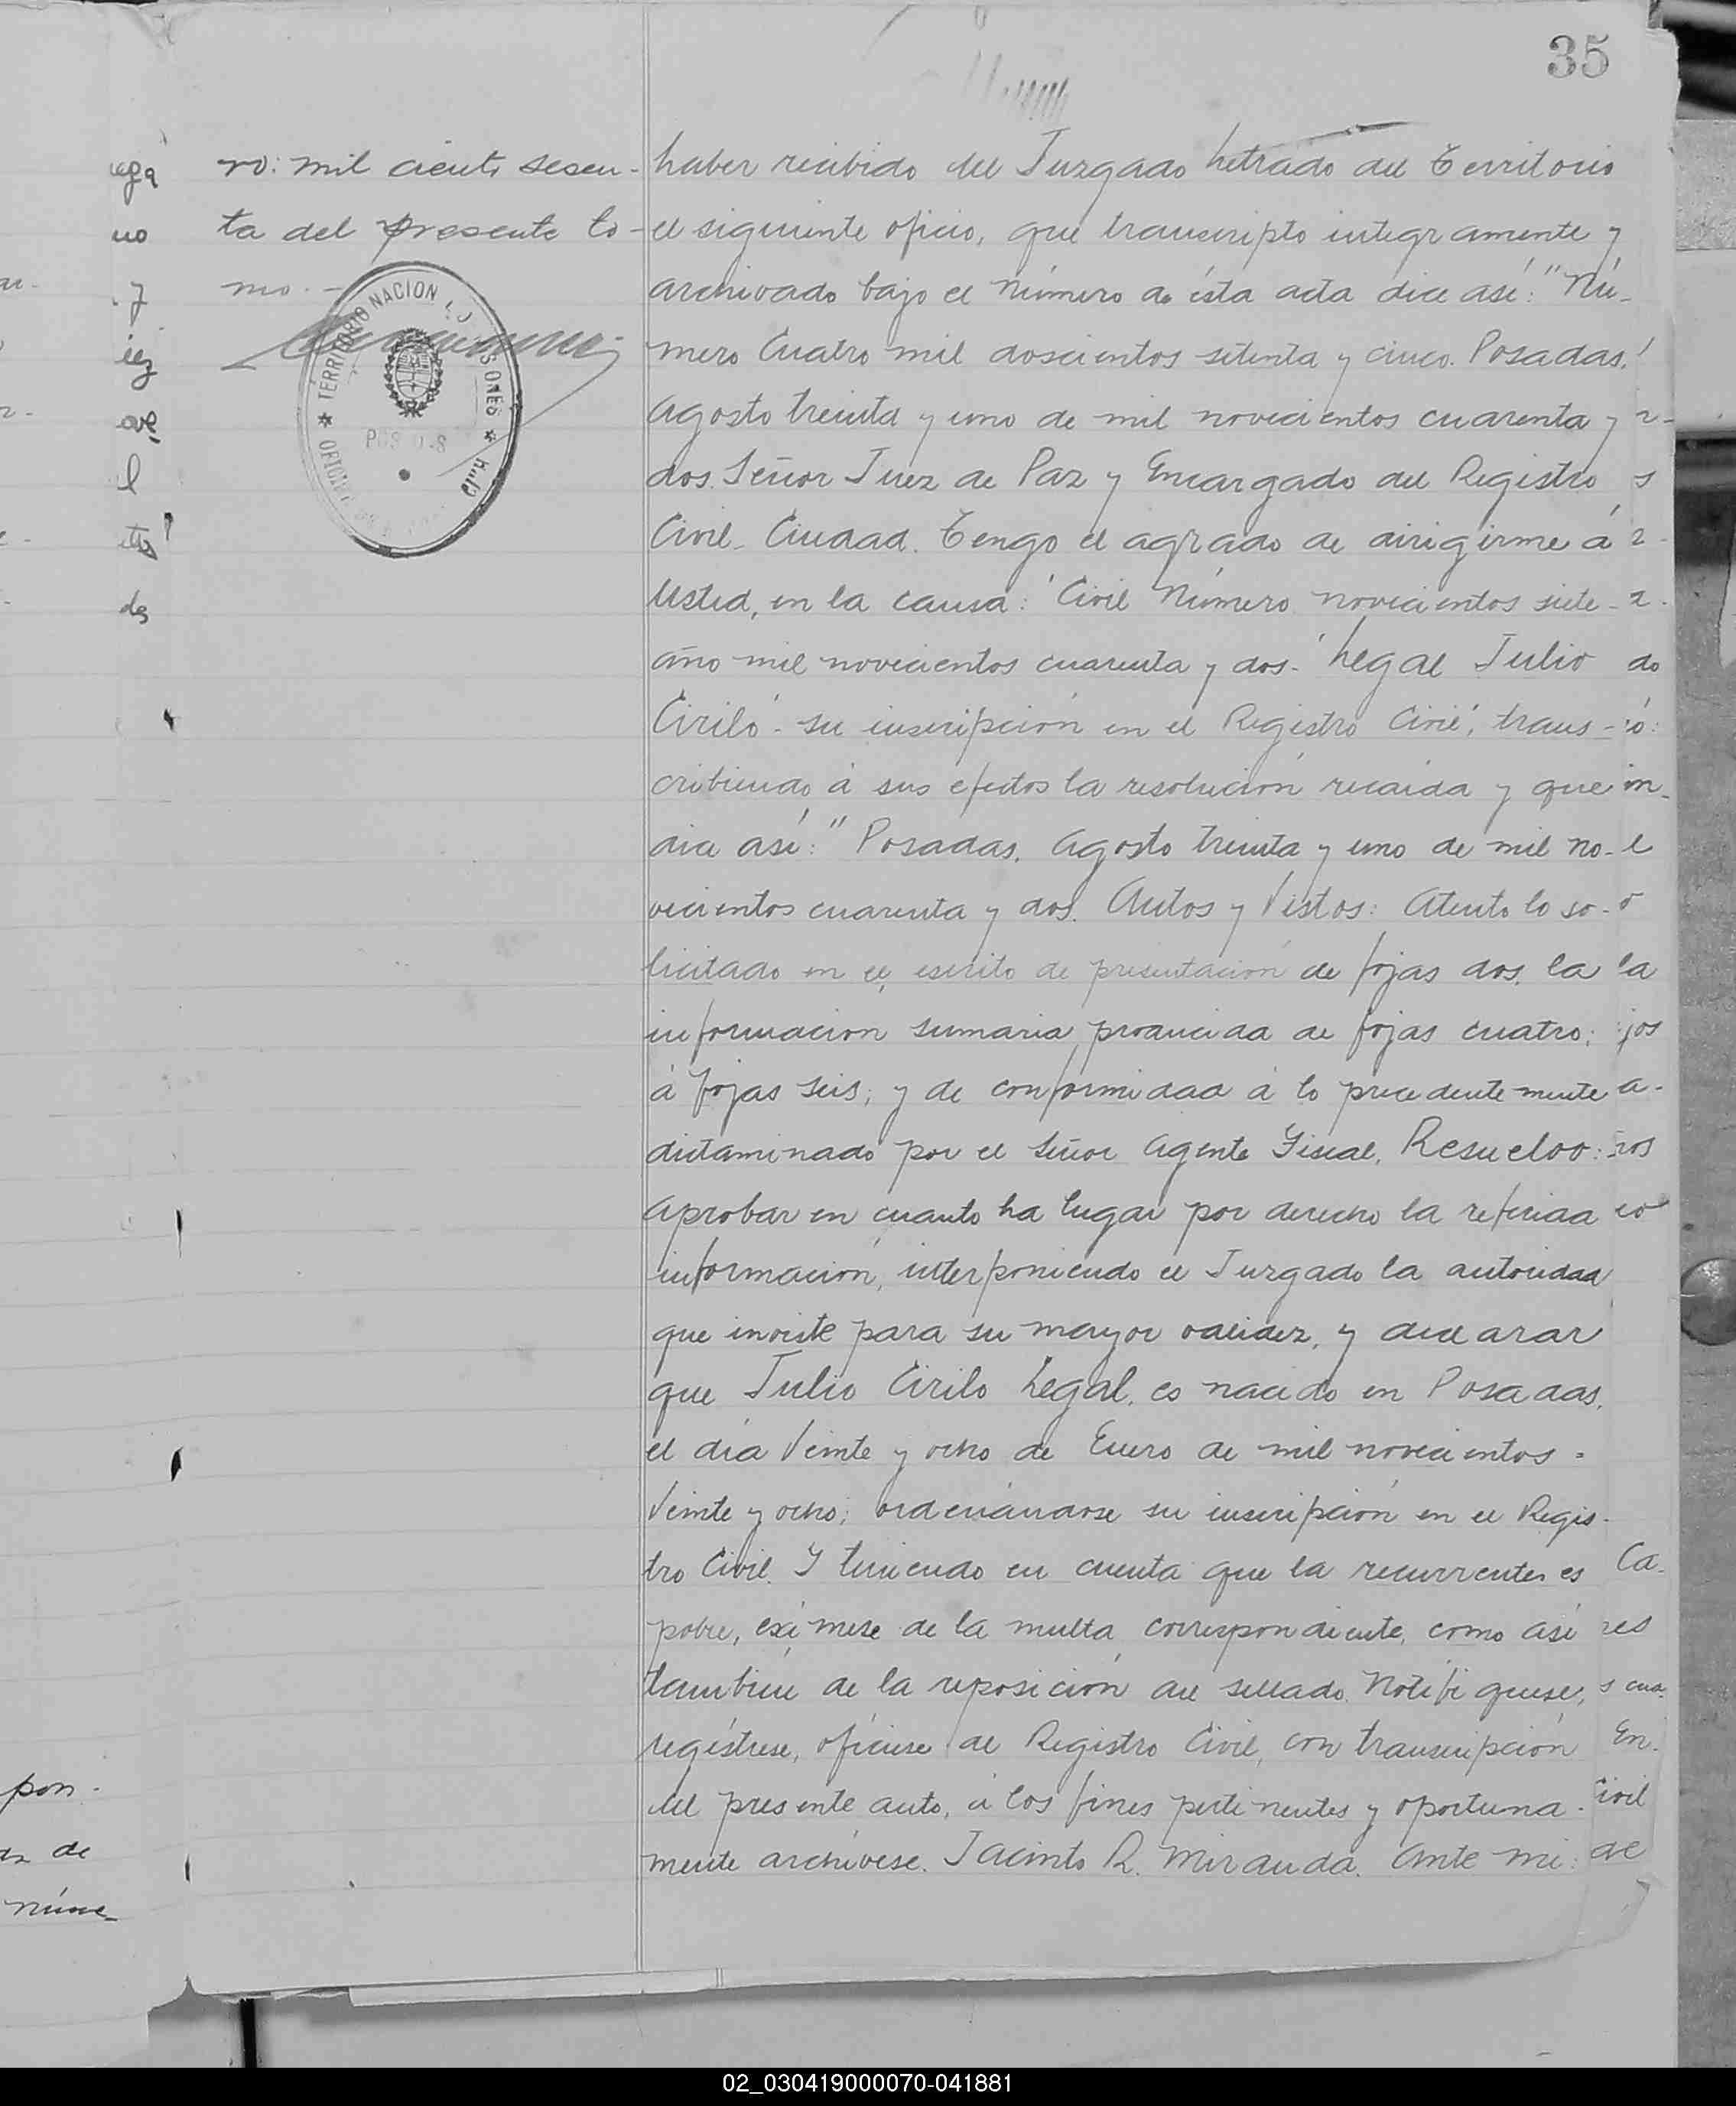 35
ro: mil ciento sesen-
ta del presente to-
mo.-
TERRITORIO NACIONAL
POSADAS
haber recibido del Juzgado Letrado del Territorio
el siguiente oficio, que transcripto integramente y
archivado bajo el número de ésta acta dice así: "Nú-
mero Cuatro mil doscientos setenta y cinco. Posadas,
Agosto treinta y uno de mil novecientos cuarenta y
dos. Señor Juez de Paz y Encargado del Registro
Civil. Ciudad. Tengo el agrado de dirigirme á
Usted, en la causa: "Civil Número novecientos siete-
año mil novecientos cuarenta y dos- Legal Julio
Cirilo- su inscripción en el Registro Civil", trans-
cribiendo á sus efectos la resolución recaída y que
dice así: "Posadas, Agosto treinta y uno de mil no-
vecientos cuarenta y dos. Autos y Vistos: Atento lo so-
licitado en el escrito de presentación de fojas dos, la
información sumaria producida de fojas cuatro,
á fojas seis, y de conformidad á lo precedentemente
dictaminado por el Señor Agente Fiscal, Resuelvo:
Aprobar en cuanto ha lugar por derecho la referida
información, interponiendo el Juzgado la autoridad
que inviste para su mayor validez, y declarar
que Julio Cirilo Legal, es nacido en Posadas,
el día Veinte y ocho de Enero de mil novecientos-
Veinte y ocho; ordenándose su inscripción en el Regis-
tro Civil. Y teniendo en cuenta que la recurrente es
pobre, exímese de la multa correspondiente, como así
también de la reposición del sellado. Notifíquese,
regístrese, ofíciese al Registro Civil, con transcripción
del presente auto, á los fines pertinentes y oportuna-
mente archívese. Jacinto R. Miranda. Ante mi:
pon-
de
núme-
Ca-
res
En-
Civil
de
02_030419000070-041881